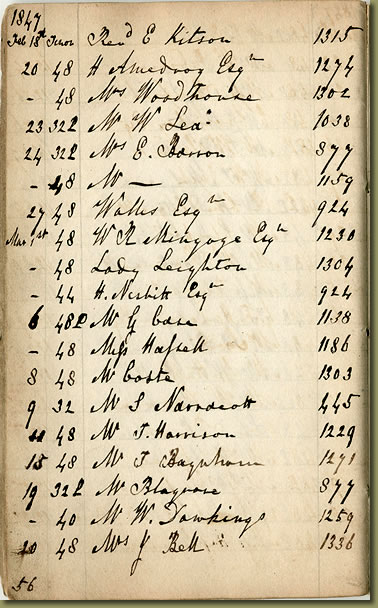 1847
Feb 18th Tenor Revd E Kitson 1315
20 48 H Esqr 1274
- 48 Mrs Woodhouse 1302
23 322 Mr W Lea 1038
24 322 Mrs E. Barson 877
- 48 Mr — 1159
27 48 Walls Esqr 924
Mar 1st 48 W R Esqr 1230
- 48 Lady Leighton 1304
- 44 H. Nesbitt Esqr 924
6 48 Mr G Case 1138
- 48 Miss Haskell 1186
8 48 Mr Coste 1303
9 32 Mr S Narracott 445
11 48 Mr T. Harrison 1229
15 48 Mr T 1271
19 322 Mr Blagrove 877
- 40 Mr W. Dawkings 1259
20 48 Mrs J Bell 1336
56